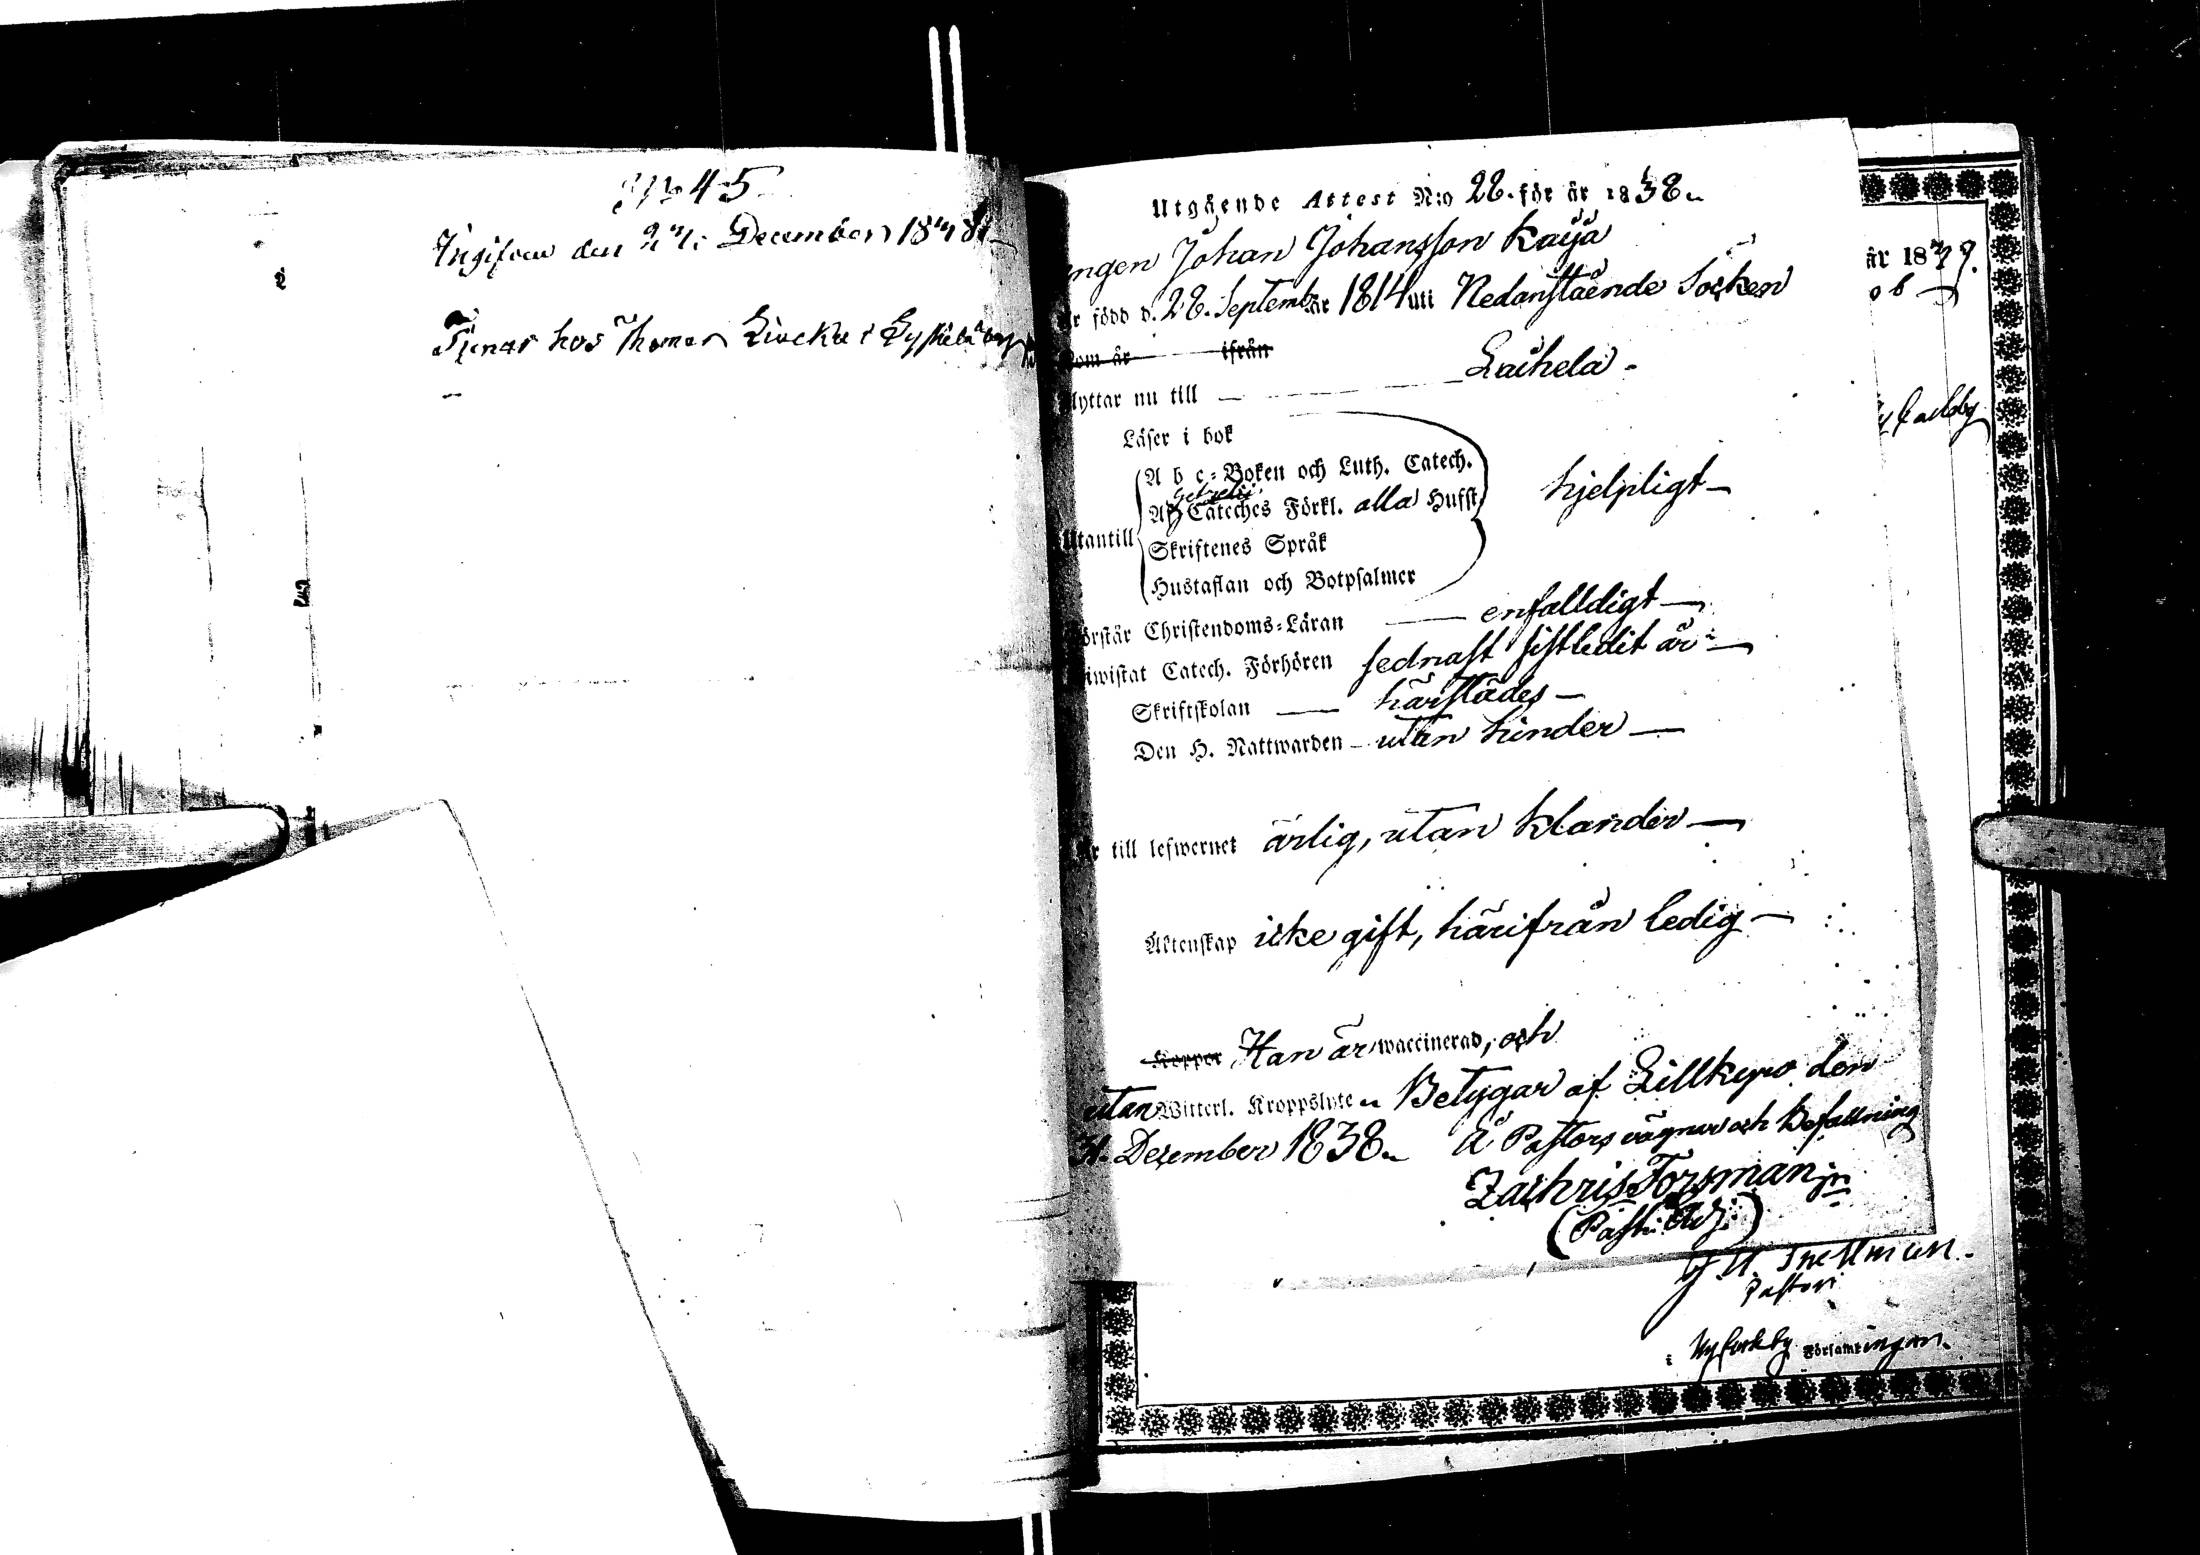 No 45
Ingifven den December 18
Tjenar hos Thomas i
Utgående Attest N:o 28. för år 1838.
ngen Johan Johansson Kaija
r född d. 28. Septemb. år 1814 uti Nedanstående Socken
om år ifrån
lyttar nu till — Laihela -
Läser i bok
A b c-Boken och Luth. Catech.
Gezelii
Cateches Förkl. alla Hufst.
hjelpligt —
Utantill
Skriftenes Språk
Hustaflan och Botpsalmer
örstår Christendoms-Läran — enfalldigt —
iwistat Catech. Förhören sednast sistledit år —
Skriftskolan — härstädes —
Den H. Nattwarden — utan hinder —
r till lefwernet ärlig, utan klander —
Äktenskap icke gift, härifrån ledig —
Koppor Han är waccinerad, och
utan Witterl. Kroppslyte. Betygar af Lillkyro den
31. December 1838. À Pastors vägnar och befallning
Zachris Forsman jn
(Past: Adj:)
år 18
ob
Carlby
Pastor
i Ny Carleby Församlingen.